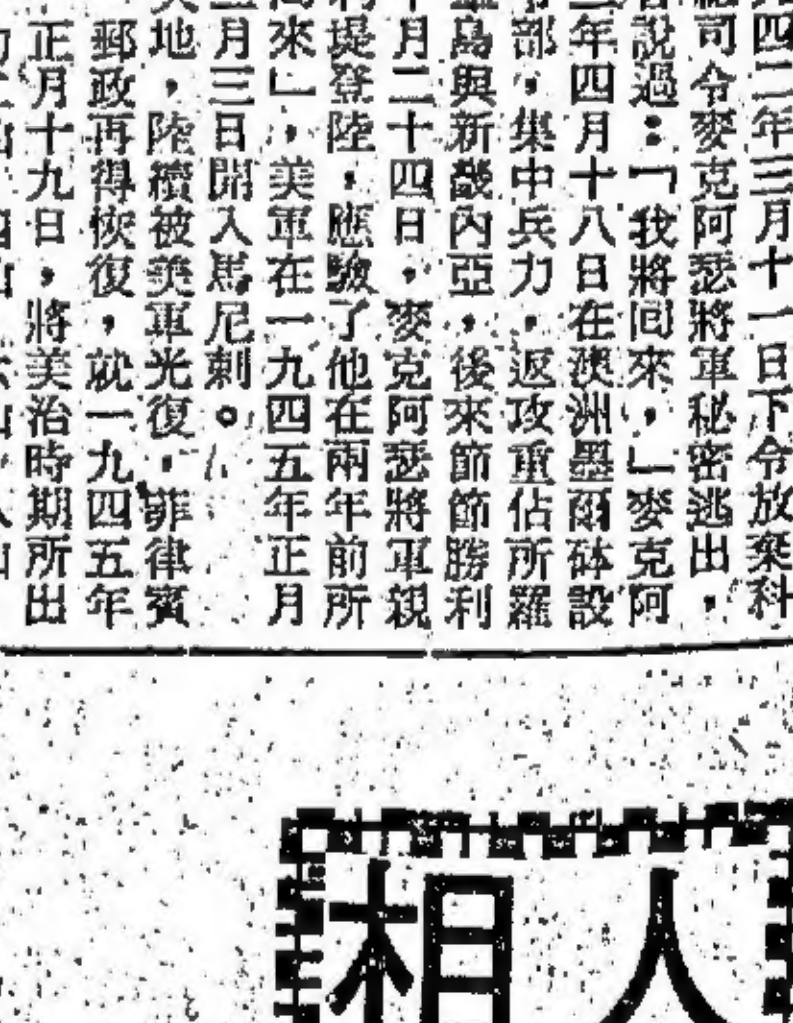 四二年三月十一日下令放棄科
司令麥克阿瑟將軍秘密逃出，
說過：「我將回來，」麥克阿
年四月十八日在澳洲墨爾砵設
部，集中兵力，返攻重佔所羅
島與新畿內亞，後來節節勝利
月二十四日，麥克阿瑟將軍親
堤登陸，應驗了他在兩年前所
來」，美軍在一九四五年正月
月三日開入馬尼剌。
地，陸續被美軍光復，菲律賓
郵政再得恢復，就一九四五年
正月十九日，將美治時期所出
人相